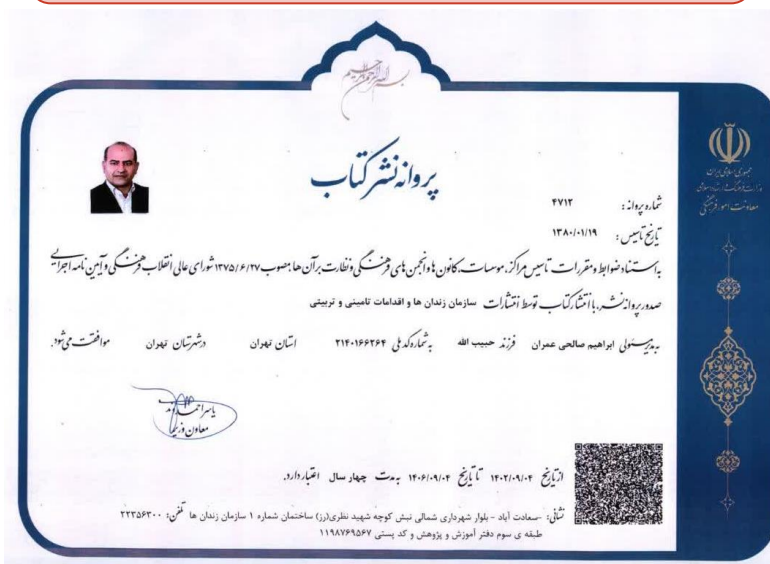 بسم الله الرحمن الرحیم
جمهوری اسلامی ایران
وزارت فرهنگ و ارشاد اسلامی
معاونت امور فرهنگی
پروانه نشر کتاب
شماره پروانه : ۴۷۱۲
تاریخ تاسیس : ۱۳۸۰/۰۱/۱۹
به استناد ضوابط و مقررات تاسیس مراکز، موسسات، کانون ها و انجمن های فرهنگی و نظارت بر آن ها مصوب ۱۳۷۵/۶/۲۷ شورای عالی انقلاب فرهنگی و آیین نامه اجرایی
صدور پروانه نشر، با انتشار کتاب توسط انتشارات سازمان زندان ها و اقدامات تامینی و تربیتی
به مدیر مسئولی ابراهیم صالحی عمران فرزند حبیب الله به شماره کد ملی ۲۱۴۰۱۶۶۲۶۴ استان تهران در شهرستان تهران موافقت می شود.
یاسر احمدوند
معاون وزیر
از تاریخ ۱۴۰۲/۰۹/۰۴ تا تاریخ ۱۴۰۶/۰۹/۰۴ به مدت چهار سال اعتبار دارد.
نشانی: -سعادت آباد - بلوار شهرداری شمالی نبش کوچه شهید نظری(رز) ساختمان شماره ۱ سازمان زندان ها تلفن: ۲۲۳۵۶۳۰۰
طبقه ی سوم دفتر آموزش و پژوهش و کد پستی ۱۱۹۸۷۶۹۵۶۷